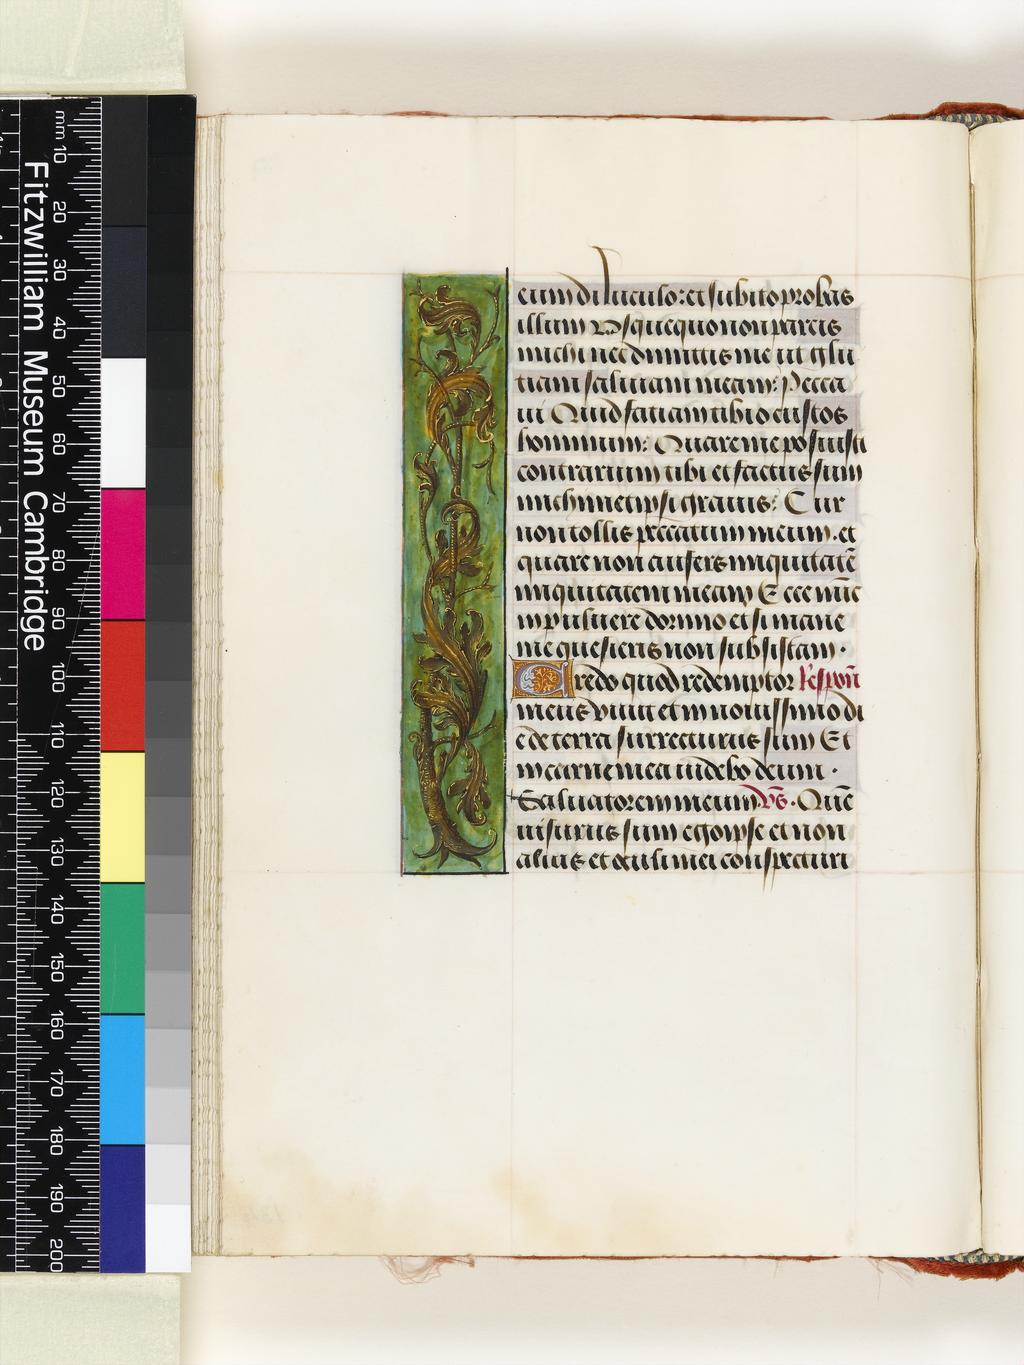 Fitzwilliam Museum Cambridge
mm 10 20 30 40 50 60 70 80 90 100 110 120 130 140 150 160 170 180 190 200
eum diluculo: et subito probas
illum Usquequo non parcis
michi nec dimittis me ut glu
tiam salivam meam: Pecca
vi Quid faciam tibi o custos
hominum: Quare me posuisti
contrarium tibi et factus sum
michimetipsi gravis: Cur
non tollis peccatum meum. et
quare non aufers iniquitatē
iniquitatem meam Ecce nūc
in pulvere dormio et si mane
me quesieris non subsistam.
Credo quod redemptor Respon̄
meus vivit et in novissimo di
e de terra surrecturus sum Et
in carne mea videbo deum.
Salvatorem meum. v̄s. Quē
visurus sum ego ipse et non
alius et oculi mei conspecturi